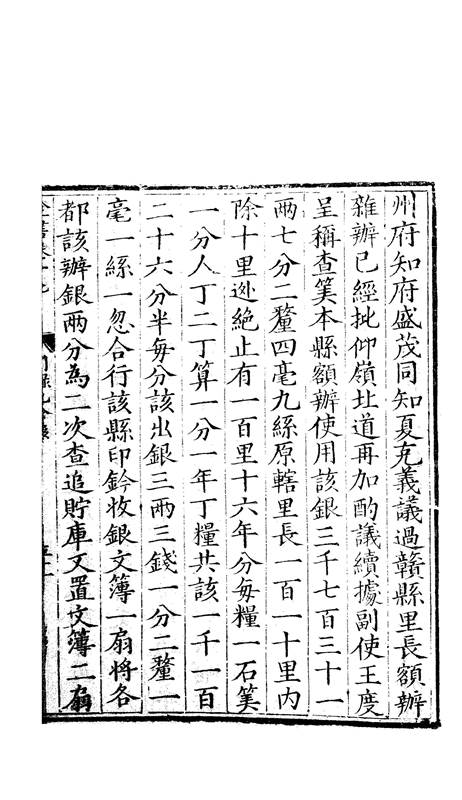 州府知府盛茂同知夏充義議過贛縣里長額辦
雜辦已經批仰嶺北道再加酌議續據副使王度
呈稱查筭本縣額辦使用該銀三千七百三十一
兩七分二釐四毫九絲原轄里長一百一十里內
除十里逃絕止有一百里十六年分每糧一石筭
一分人丁二丁算一分一年丁糧共該一千一百
二十六分半每分該出銀三兩三錢一分二釐一
毫一絲一忽合行該縣印鈐收銀文簿一扇將各
都該辦銀兩分為二次查追貯庫又置文簿二扇